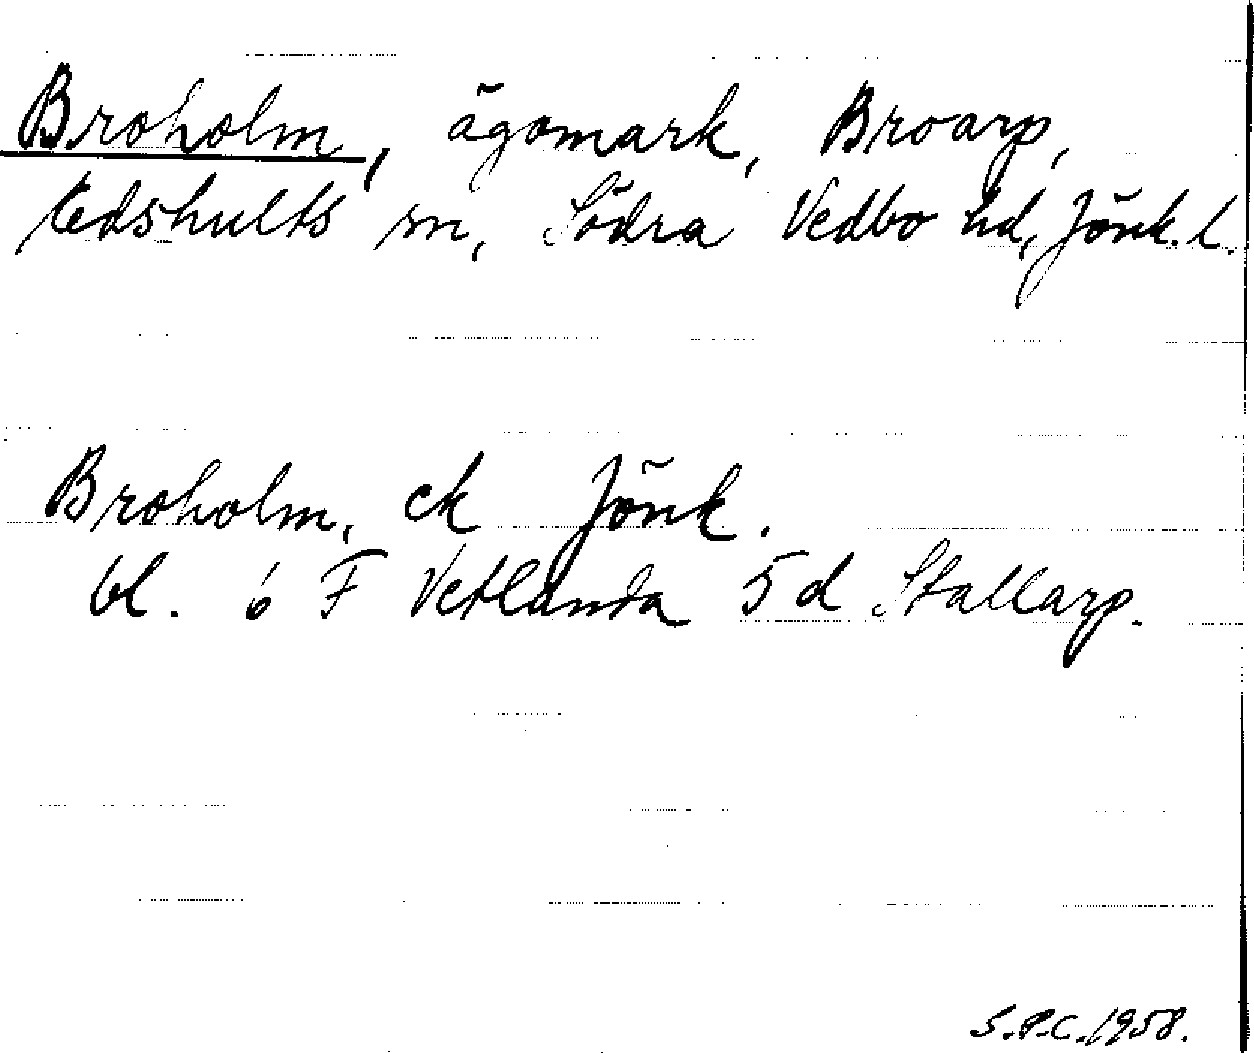 Broholm, ägomark, Broarp,
Edshults sn, Södra Vedbo hd, Jönk. l.
Broholm, ek Jönk.
bl. 6 F Vetlanda 5 d Stallarp.
S.P.C. 1958.